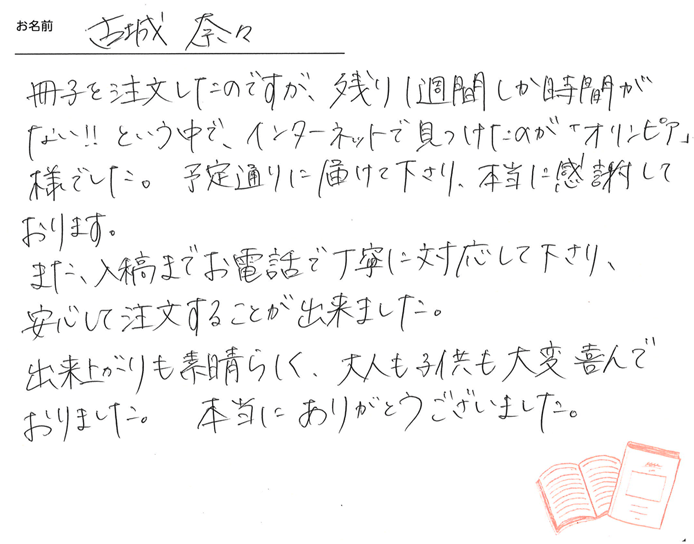 お名前 古城 奈々
冊子を注文したのですが、残り1週間しか時間が
ない!! という中で、インターネットで見つけたのが「オリンピア」
様でした。 予定通りに届けて下さり、本当に感謝して
おります。
また、入稿までお電話で丁寧に対応して下さり、
安心して注文することが出来ました。
出来上がりも素晴らしく、大人も子供も大変喜んで
おりました。 本当にありがとうございました。